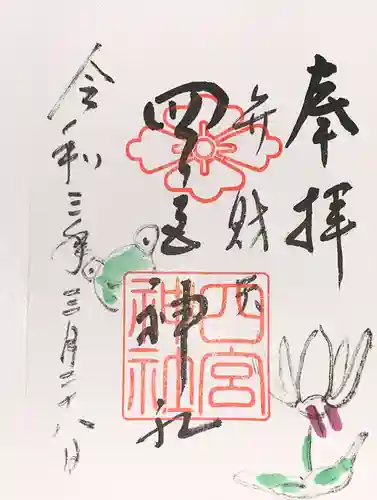 奉拝
弁財天
四宮神社
四宮
神社
令和三年三月二十八日